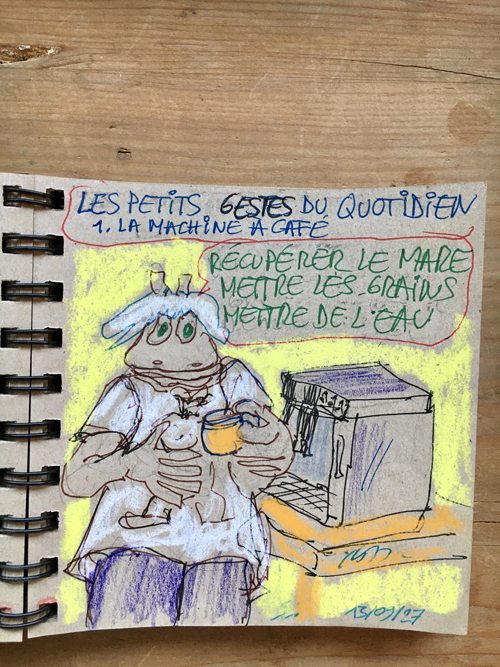 LES PETITS GESTES DU QUOTIDIEN
1. LA MACHINE A CAFÉ
RÉCUPÉRER LE MARE
METTRE LES GRAINS
METTRE DE L'EAU